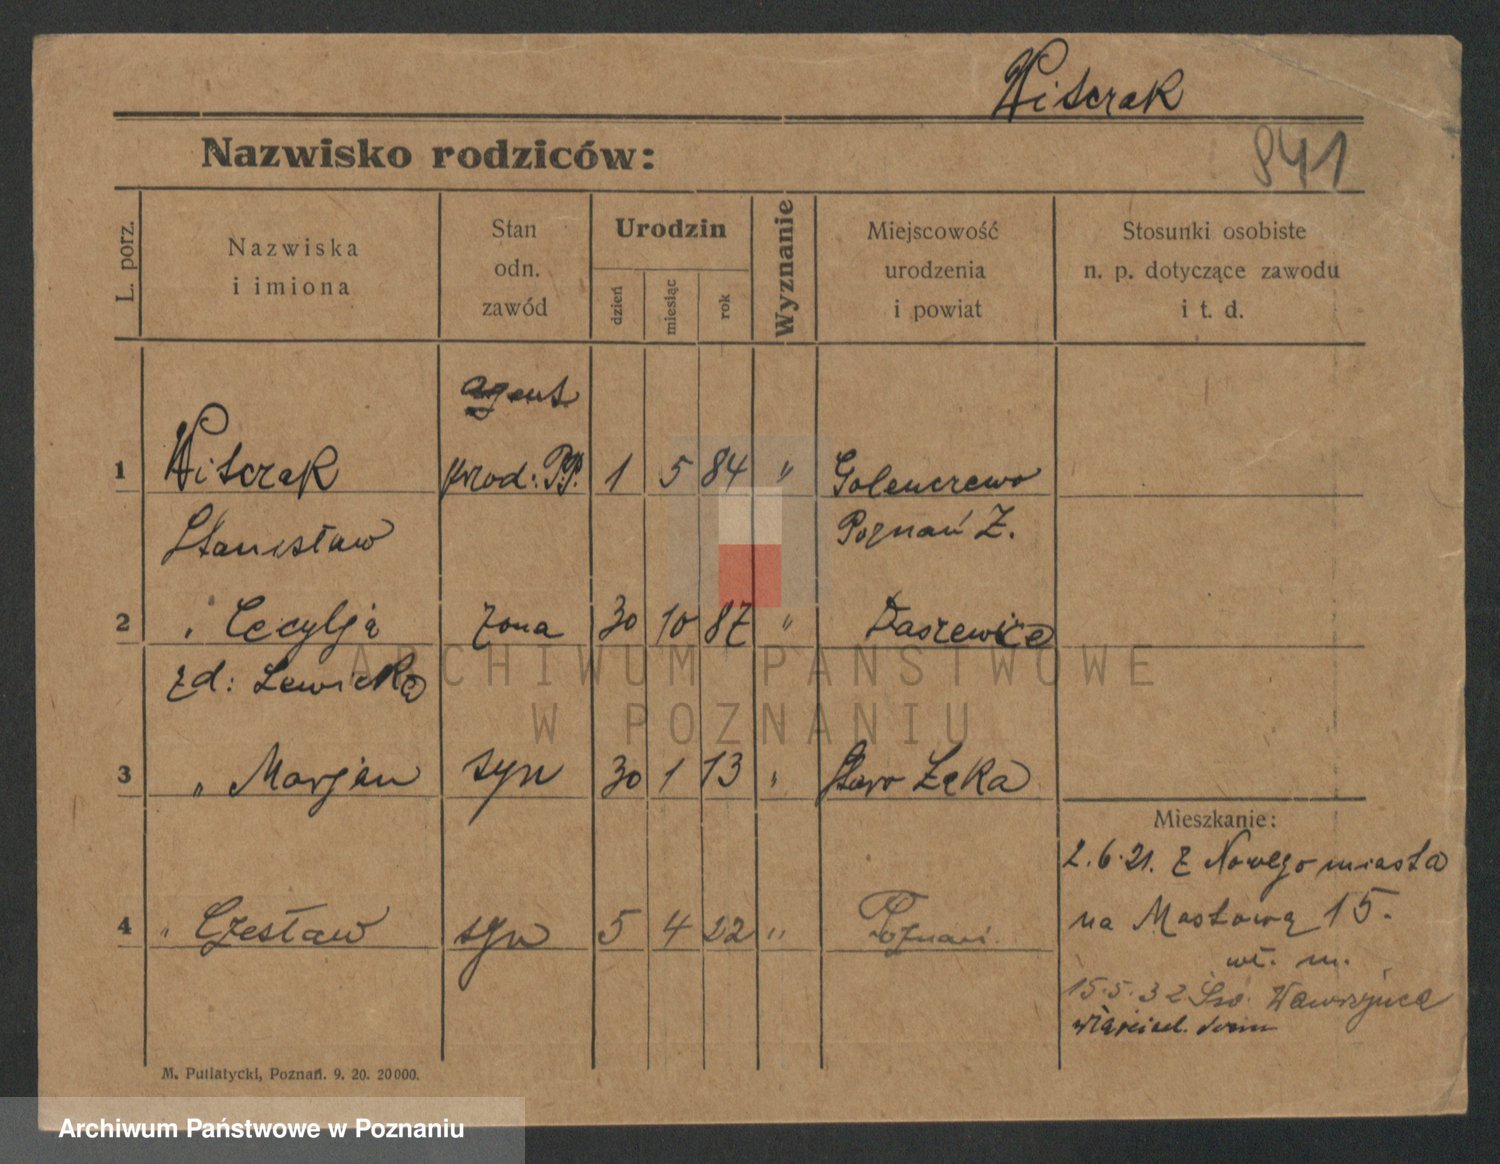 Witczak
941
Nazwisko rodziców:
L. porz.
Nazwiska
i imiona
Stan
odn.
zawód
Urodzin
dzień
miesiąc
rok
Wyznanie
Miejscowość
urodzenia
i powiat
Stosunki osobiste
n. p. dotyczące zawodu
i t. d.
agent
1 Witczak prod: P.P. 1 5 84 " Golenczewo
Stanisław Poznań Z.
2 " Cecylja żona 30 10 87 " Daszewice
zd: Lewicka
3 " Marjan syn 30 1 13 " Staro Łęka
Mieszkanie:
2.6.21. z Nowego miasta
na Mostową 15.
4 " Czesław syn 5 4 22 " Poznań
wł. m.
15.5.32 Św. Wawrzyńca
właściciel. domu
M. Putiatycki, Poznań. 9. 20. 20000.
ARCHIWUM PAŃSTWOWE
W POZNANIU
Archiwum Państwowe w Poznaniu